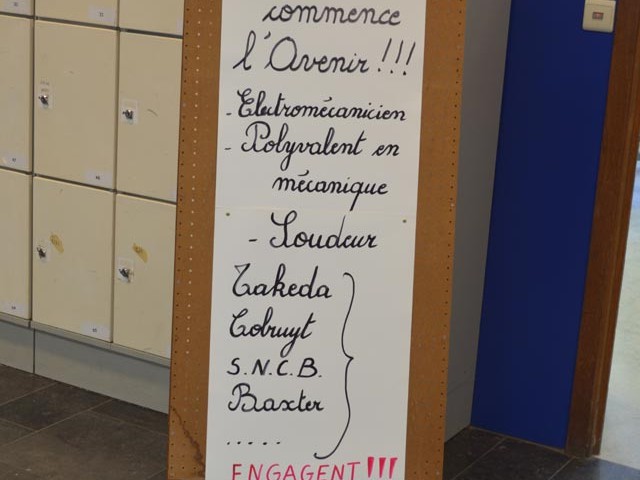 commence
l'Avenir !!!
- Electromécanicien
- Polyvalent en
mécanique
- Soudeur
Takeda
Colruyt
S.N.C.B.
Baxter
.....
ENGAGENT !!!